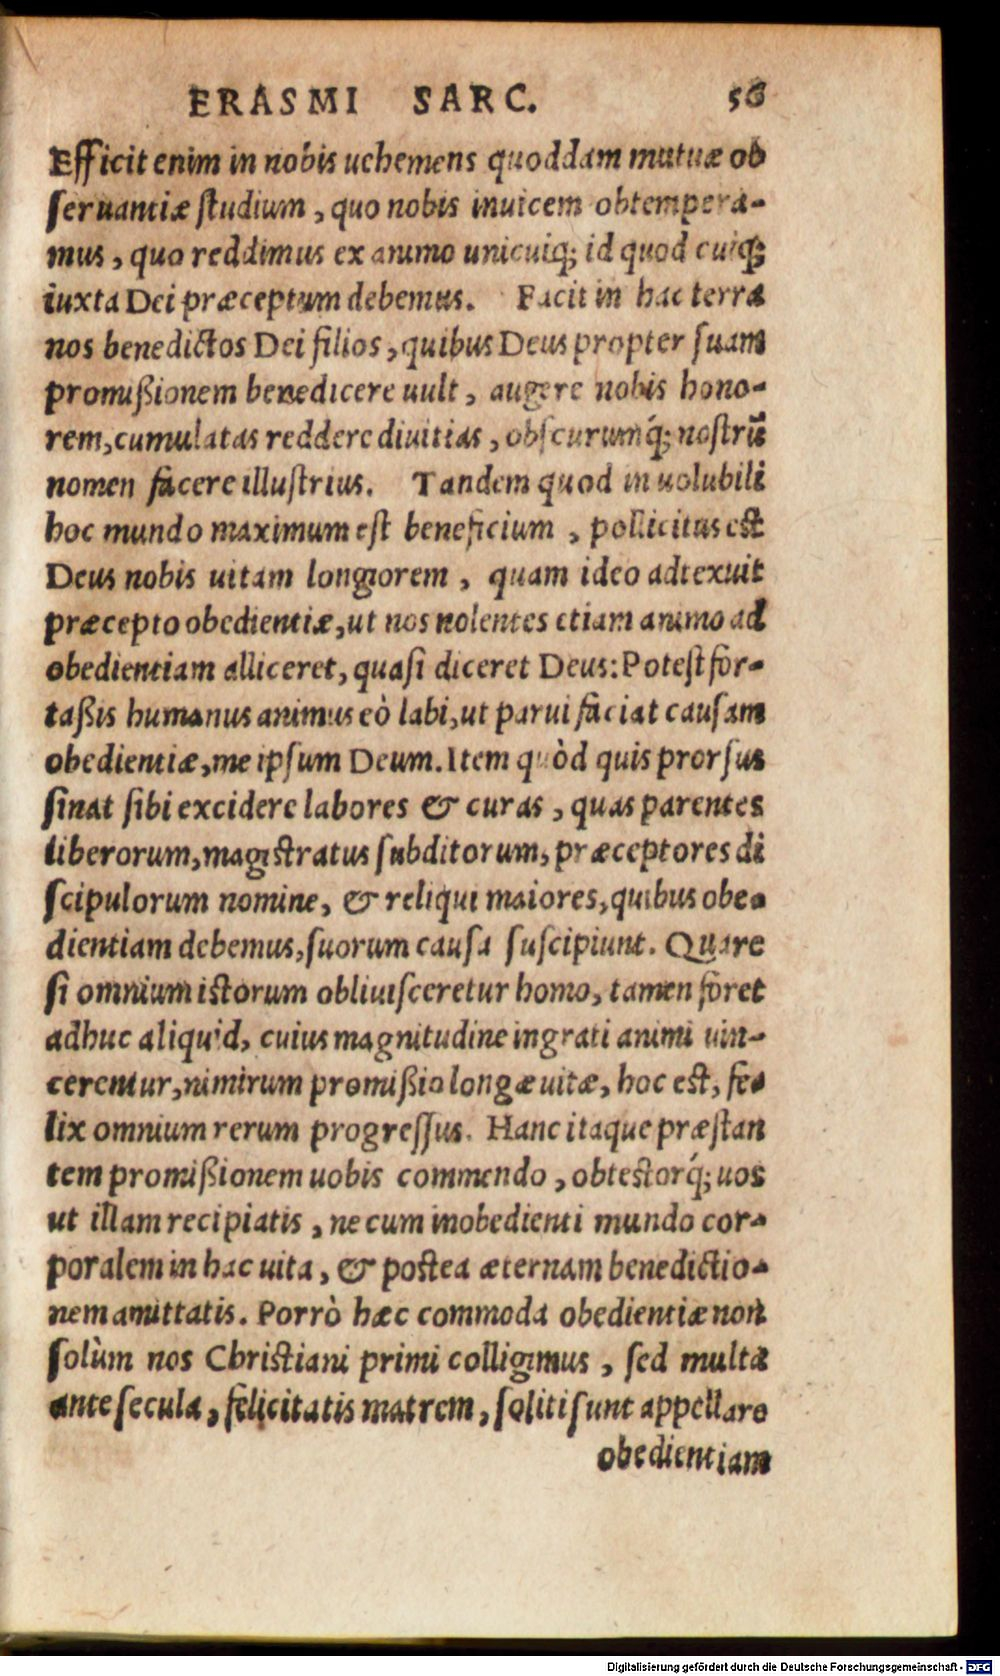 ERASMI SARC. 56
Efficit enim in nobis uehemens quoddam mutuæ ob
seruantiæ studium, quo nobis inuicem obtempera-
mus, quo reddimus ex animo unicuiq; id quod cuiq;
iuxta Dei præceptum debemus. Facit in hac terra
nos benedictos Dei filios, quibus Deus propter suam
promißionem benedicere uult, augere nobis hono-
rem, cumulatas reddere diuitias, obscurumq́; nostrũ
nomen facere illustrius. Tandem quod in uolubili
hoc mundo maximum est beneficium, pollicitus est
Deus nobis uitam longiorem, quam ideo adtexuit
præcepto obedientiæ, ut nos nolentes etiam animo ad
obedientiam alliceret, quasi diceret Deus: Potest for-
taßis humanus animus eò labi, ut parui faciat causam
obedientiæ, me ipsum Deum. Item quòd quis prorsus
sinat sibi excidere labores & curas, quas parentes
liberorum, magistratus subditorum, præceptores di
scipulorum nomine, & reliqui maiores, quibus obe-
dientiam debemus, suorum causa suscipiunt. Quare
si omnium istorum obliuisceretur homo, tamen foret
adhuc aliquid, cuius magnitudine ingrati animi uin-
cerentur, nimirum promißio longæ uitæ, hoc est, fe-
lix omnium rerum progressus. Hanc itaque præstan
tem promißionem uobis commendo, obtestorq́; uos
ut illam recipiatis, ne cum inobedienti mundo cor-
poralem in hac uita, & postea æternam benedictio-
nem amittatis. Porrò hæc commoda obedientiæ non
solùm nos Christiani primi colligimus, sed multa
ante secula, felicitatis matrem, soliti sunt appellare
obedientiam
Digitalisierung gefördert durch die Deutsche Forschungsgemeinschaft - DFG